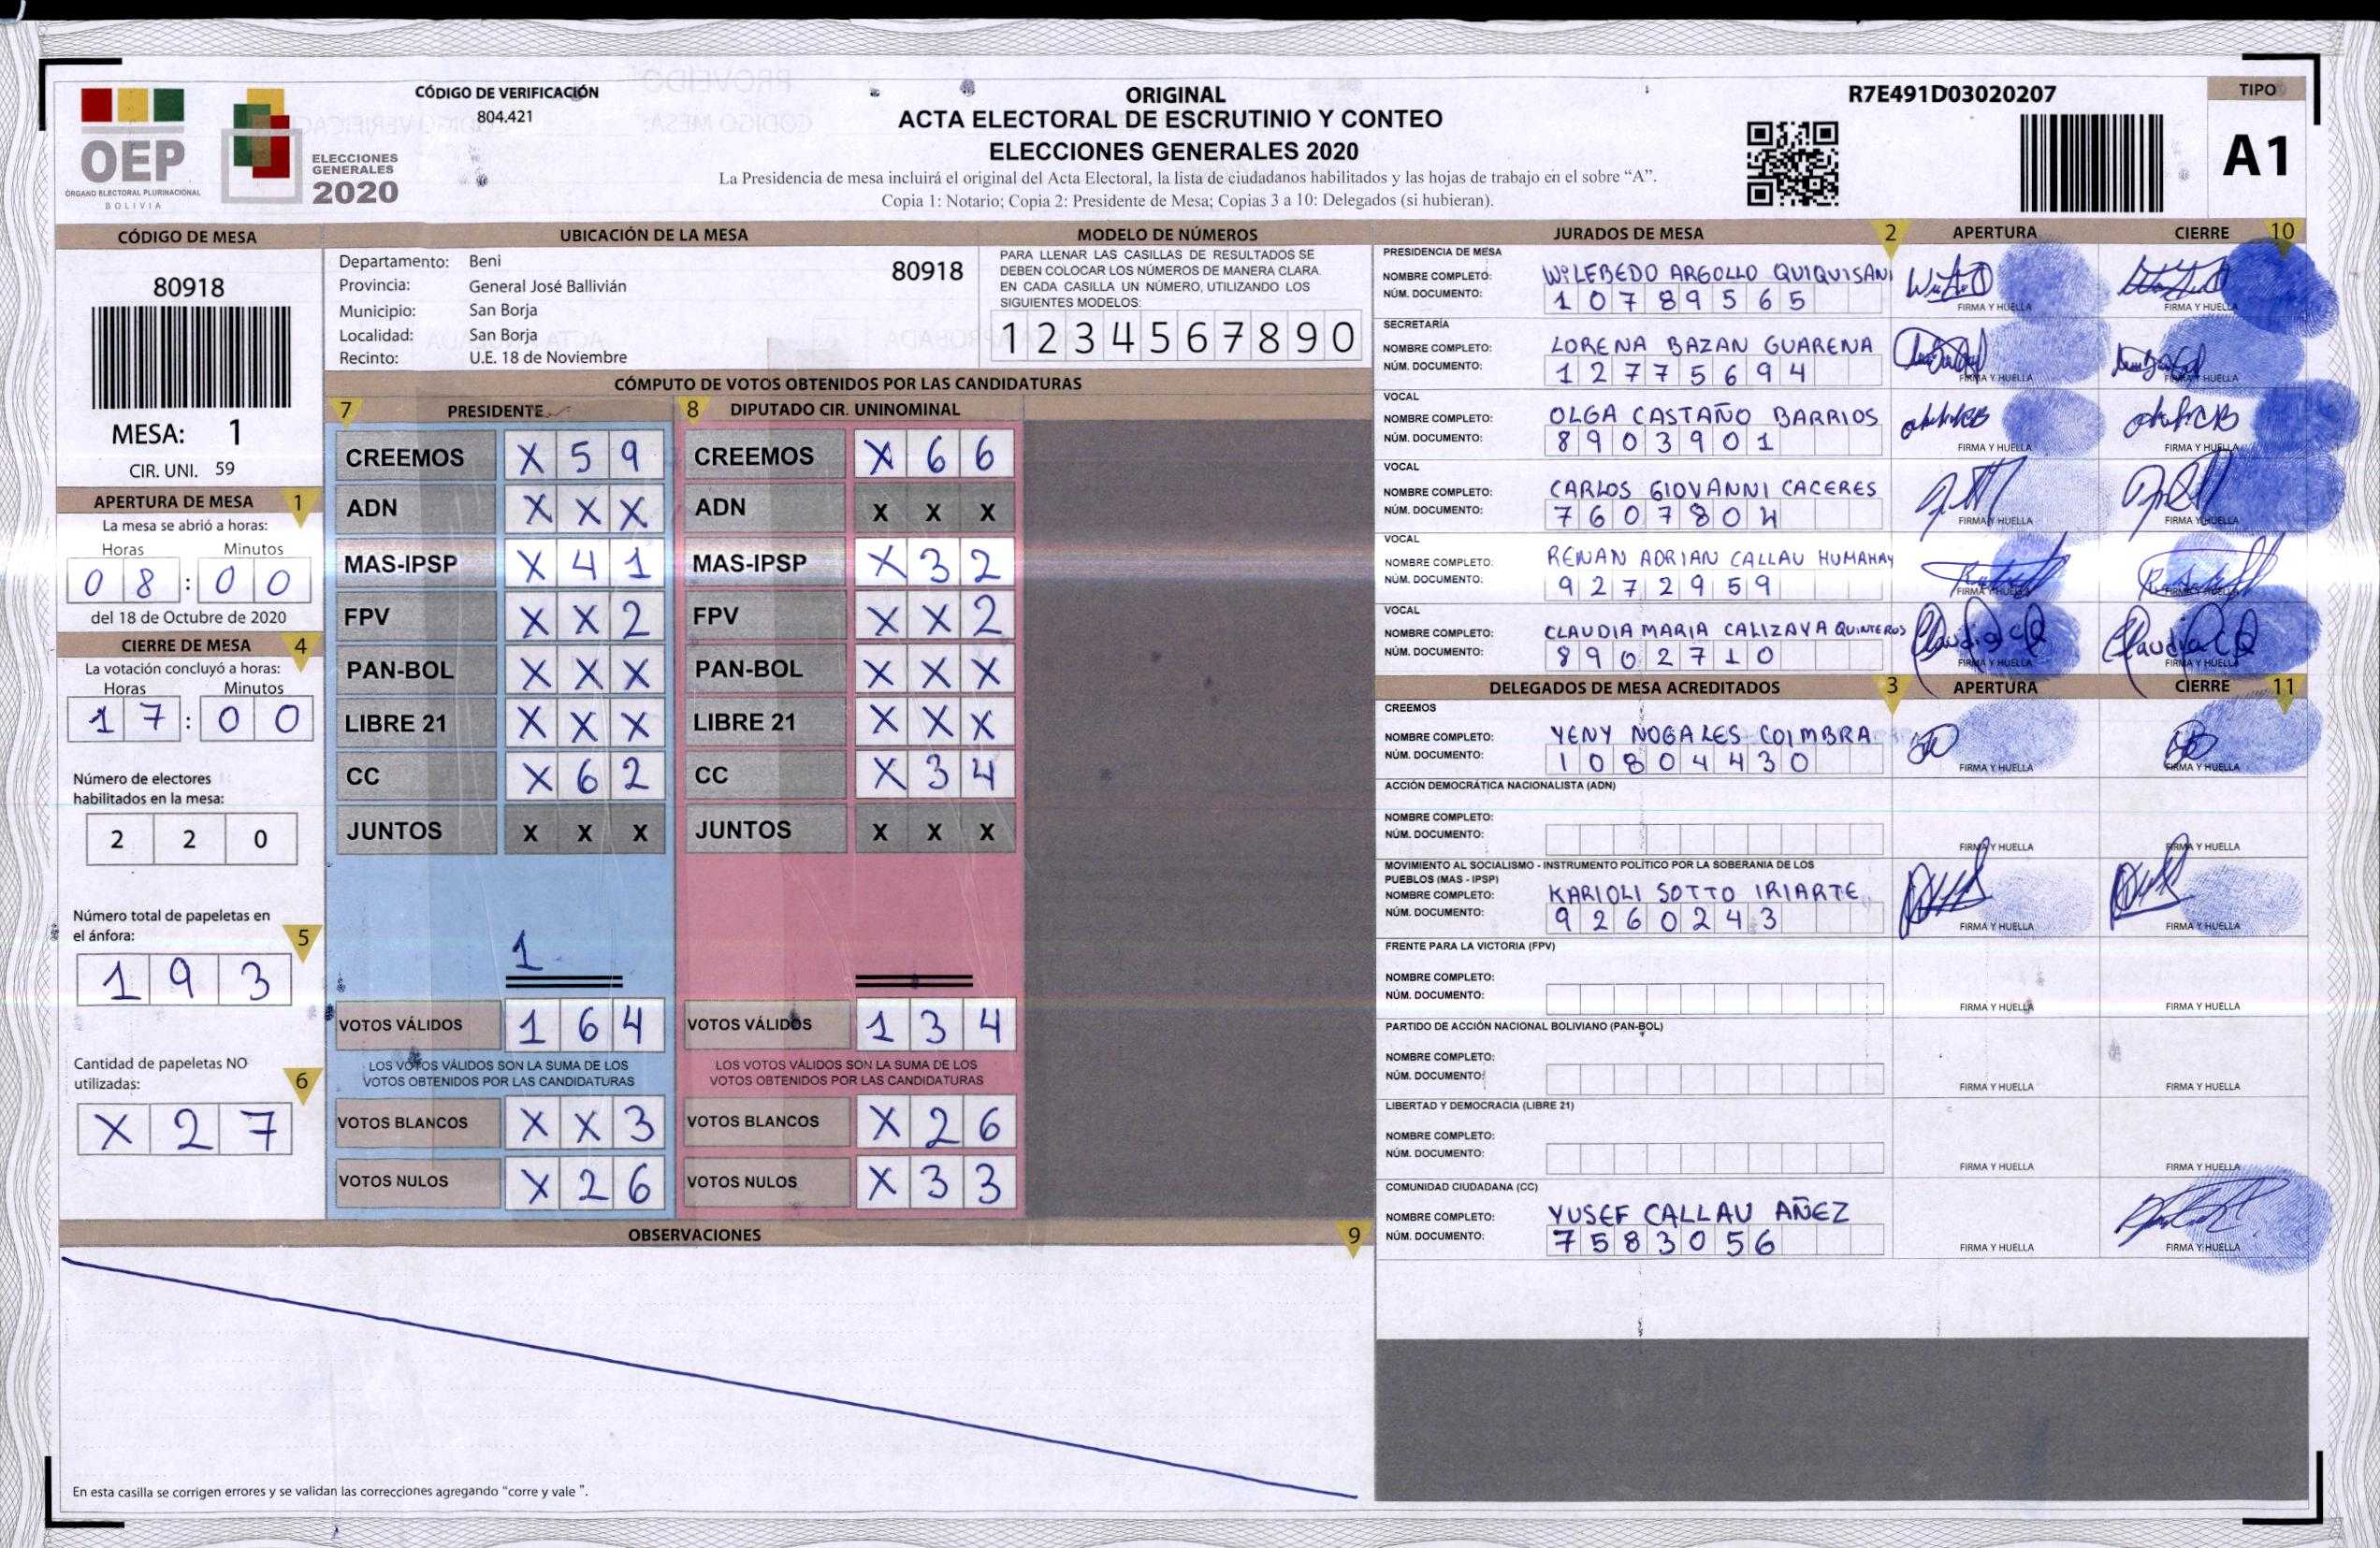 CÓDIGO DE VERIFICACIÓN
804.421
OEP
ÓRGANO ELECTORAL PLURINACIONAL
BOLIVIA
ELECCIONES
GENERALES
2020
ORIGINAL
ACTA ELECTORAL DE ESCRUTINIO Y CONTEO
ELECCIONES GENERALES 2020
La Presidencia de mesa incluirá el original del Acta Electoral, la lista de ciudadanos habilitados y las hojas de trabajo en el sobre “A”.
Copia 1: Notario; Copia 2: Presidente de Mesa; Copias 3 a 10: Delegados (si hubieran).
R7E491D03020207
TIPO
A1
CÓDIGO DE MESA
80918
MESA: 1
CIR. UNI. 59
APERTURA DE MESA 1
La mesa se abrió a horas:
Horas Minutos
0 8 : 0 0
del 18 de Octubre de 2020
CIERRE DE MESA 4
La votación concluyó a horas:
Horas Minutos
1 7 : 0 0
Número de electores
habilitados en la mesa:
2 2 0
Número total de papeletas en
el ánfora: 5
1 9 3
Cantidad de papeletas NO
utilizadas: 6
X 2 7
UBICACIÓN DE LA MESA
Departamento: Beni
Provincia: General José Ballivián
Municipio: San Borja
Localidad: San Borja
Recinto: U.E. 18 de Noviembre
80918
MODELO DE NÚMEROS
PARA LLENAR LAS CASILLAS DE RESULTADOS SE
DEBEN COLOCAR LOS NÚMEROS DE MANERA CLARA.
EN CADA CASILLA UN NÚMERO, UTILIZANDO LOS
SIGUIENTES MODELOS:
1 2 3 4 5 6 7 8 9 0
CÓMPUTO DE VOTOS OBTENIDOS POR LAS CANDIDATURAS
7 PRESIDENTE
CREEMOS X 5 9
ADN X X X
MAS-IPSP X 4 1
FPV X X 2
PAN-BOL X X X
LIBRE 21 X X X
CC X 6 2
JUNTOS X X X
1
VOTOS VÁLIDOS 1 6 4
LOS VOTOS VÁLIDOS SON LA SUMA DE LOS
VOTOS OBTENIDOS POR LAS CANDIDATURAS
VOTOS BLANCOS X X 3
VOTOS NULOS X 2 6
8 DIPUTADO CIR. UNINOMINAL
CREEMOS X 6 6
ADN X X X
MAS-IPSP X 3 2
FPV X X 2
PAN-BOL X X X
LIBRE 21 X X X
CC X 3 4
JUNTOS X X X
VOTOS VÁLIDOS 1 3 4
LOS VOTOS VÁLIDOS SON LA SUMA DE LOS
VOTOS OBTENIDOS POR LAS CANDIDATURAS
VOTOS BLANCOS X 2 6
VOTOS NULOS X 3 3
OBSERVACIONES 9
En esta casilla se corrigen errores y se validan las correcciones agregando “corre y vale ”.
JURADOS DE MESA 2 APERTURA CIERRE 10
PRESIDENCIA DE MESA
NOMBRE COMPLETO: WILEBEDO ARGOLLO QUIQUISANI
NÚM. DOCUMENTO: 1 0 7 8 9 5 6 5
FIRMA Y HUELLA FIRMA Y HUELLA
SECRETARÍA
NOMBRE COMPLETO: LORENA BAZAN GUARENA
NÚM. DOCUMENTO: 1 2 7 7 5 6 9 4
FIRMA Y HUELLA FIRMA Y HUELLA
VOCAL
NOMBRE COMPLETO: OLGA CASTAÑO BARRIOS
NÚM. DOCUMENTO: 8 9 0 3 9 0 1
FIRMA Y HUELLA FIRMA Y HUELLA
VOCAL
NOMBRE COMPLETO: CARLOS GIOVANNI CACERES
NÚM. DOCUMENTO: 7 6 0 7 8 0 4
FIRMA Y HUELLA FIRMA Y HUELLA
VOCAL
NOMBRE COMPLETO: RENAN ADRIAN CALLAU HUMAHAY
NÚM. DOCUMENTO: 9 2 7 2 9 5 9
FIRMA Y HUELLA FIRMA Y HUELLA
VOCAL
NOMBRE COMPLETO: CLAUDIA MARIA CALIZAYA QUINTEROS
NÚM. DOCUMENTO: 8 9 0 2 7 1 0
FIRMA Y HUELLA FIRMA Y HUELLA
DELEGADOS DE MESA ACREDITADOS 3 APERTURA CIERRE 11
CREEMOS
NOMBRE COMPLETO: YENY NOGALES COIMBRA
NÚM. DOCUMENTO: 1 0 8 0 4 4 3 0
FIRMA Y HUELLA FIRMA Y HUELLA
ACCIÓN DEMOCRÁTICA NACIONALISTA (ADN)
NOMBRE COMPLETO:
NÚM. DOCUMENTO:
FIRMA Y HUELLA FIRMA Y HUELLA
MOVIMIENTO AL SOCIALISMO - INSTRUMENTO POLÍTICO POR LA SOBERANIA DE LOS
PUEBLOS (MAS - IPSP)
NOMBRE COMPLETO: KARIOLI SOTTO IRIARTE
NÚM. DOCUMENTO: 9 2 6 0 2 4 3
FIRMA Y HUELLA FIRMA Y HUELLA
FRENTE PARA LA VICTORIA (FPV)
NOMBRE COMPLETO:
NÚM. DOCUMENTO:
FIRMA Y HUELLA FIRMA Y HUELLA
PARTIDO DE ACCIÓN NACIONAL BOLIVIANO (PAN-BOL)
NOMBRE COMPLETO:
NÚM. DOCUMENTO:
FIRMA Y HUELLA FIRMA Y HUELLA
LIBERTAD Y DEMOCRACIA (LIBRE 21)
NOMBRE COMPLETO:
NÚM. DOCUMENTO:
FIRMA Y HUELLA FIRMA Y HUELLA
COMUNIDAD CIUDADANA (CC)
NOMBRE COMPLETO: YUSEF CALLAU AÑEZ
NÚM. DOCUMENTO: 7 5 8 3 0 5 6
FIRMA Y HUELLA FIRMA Y HUELLA